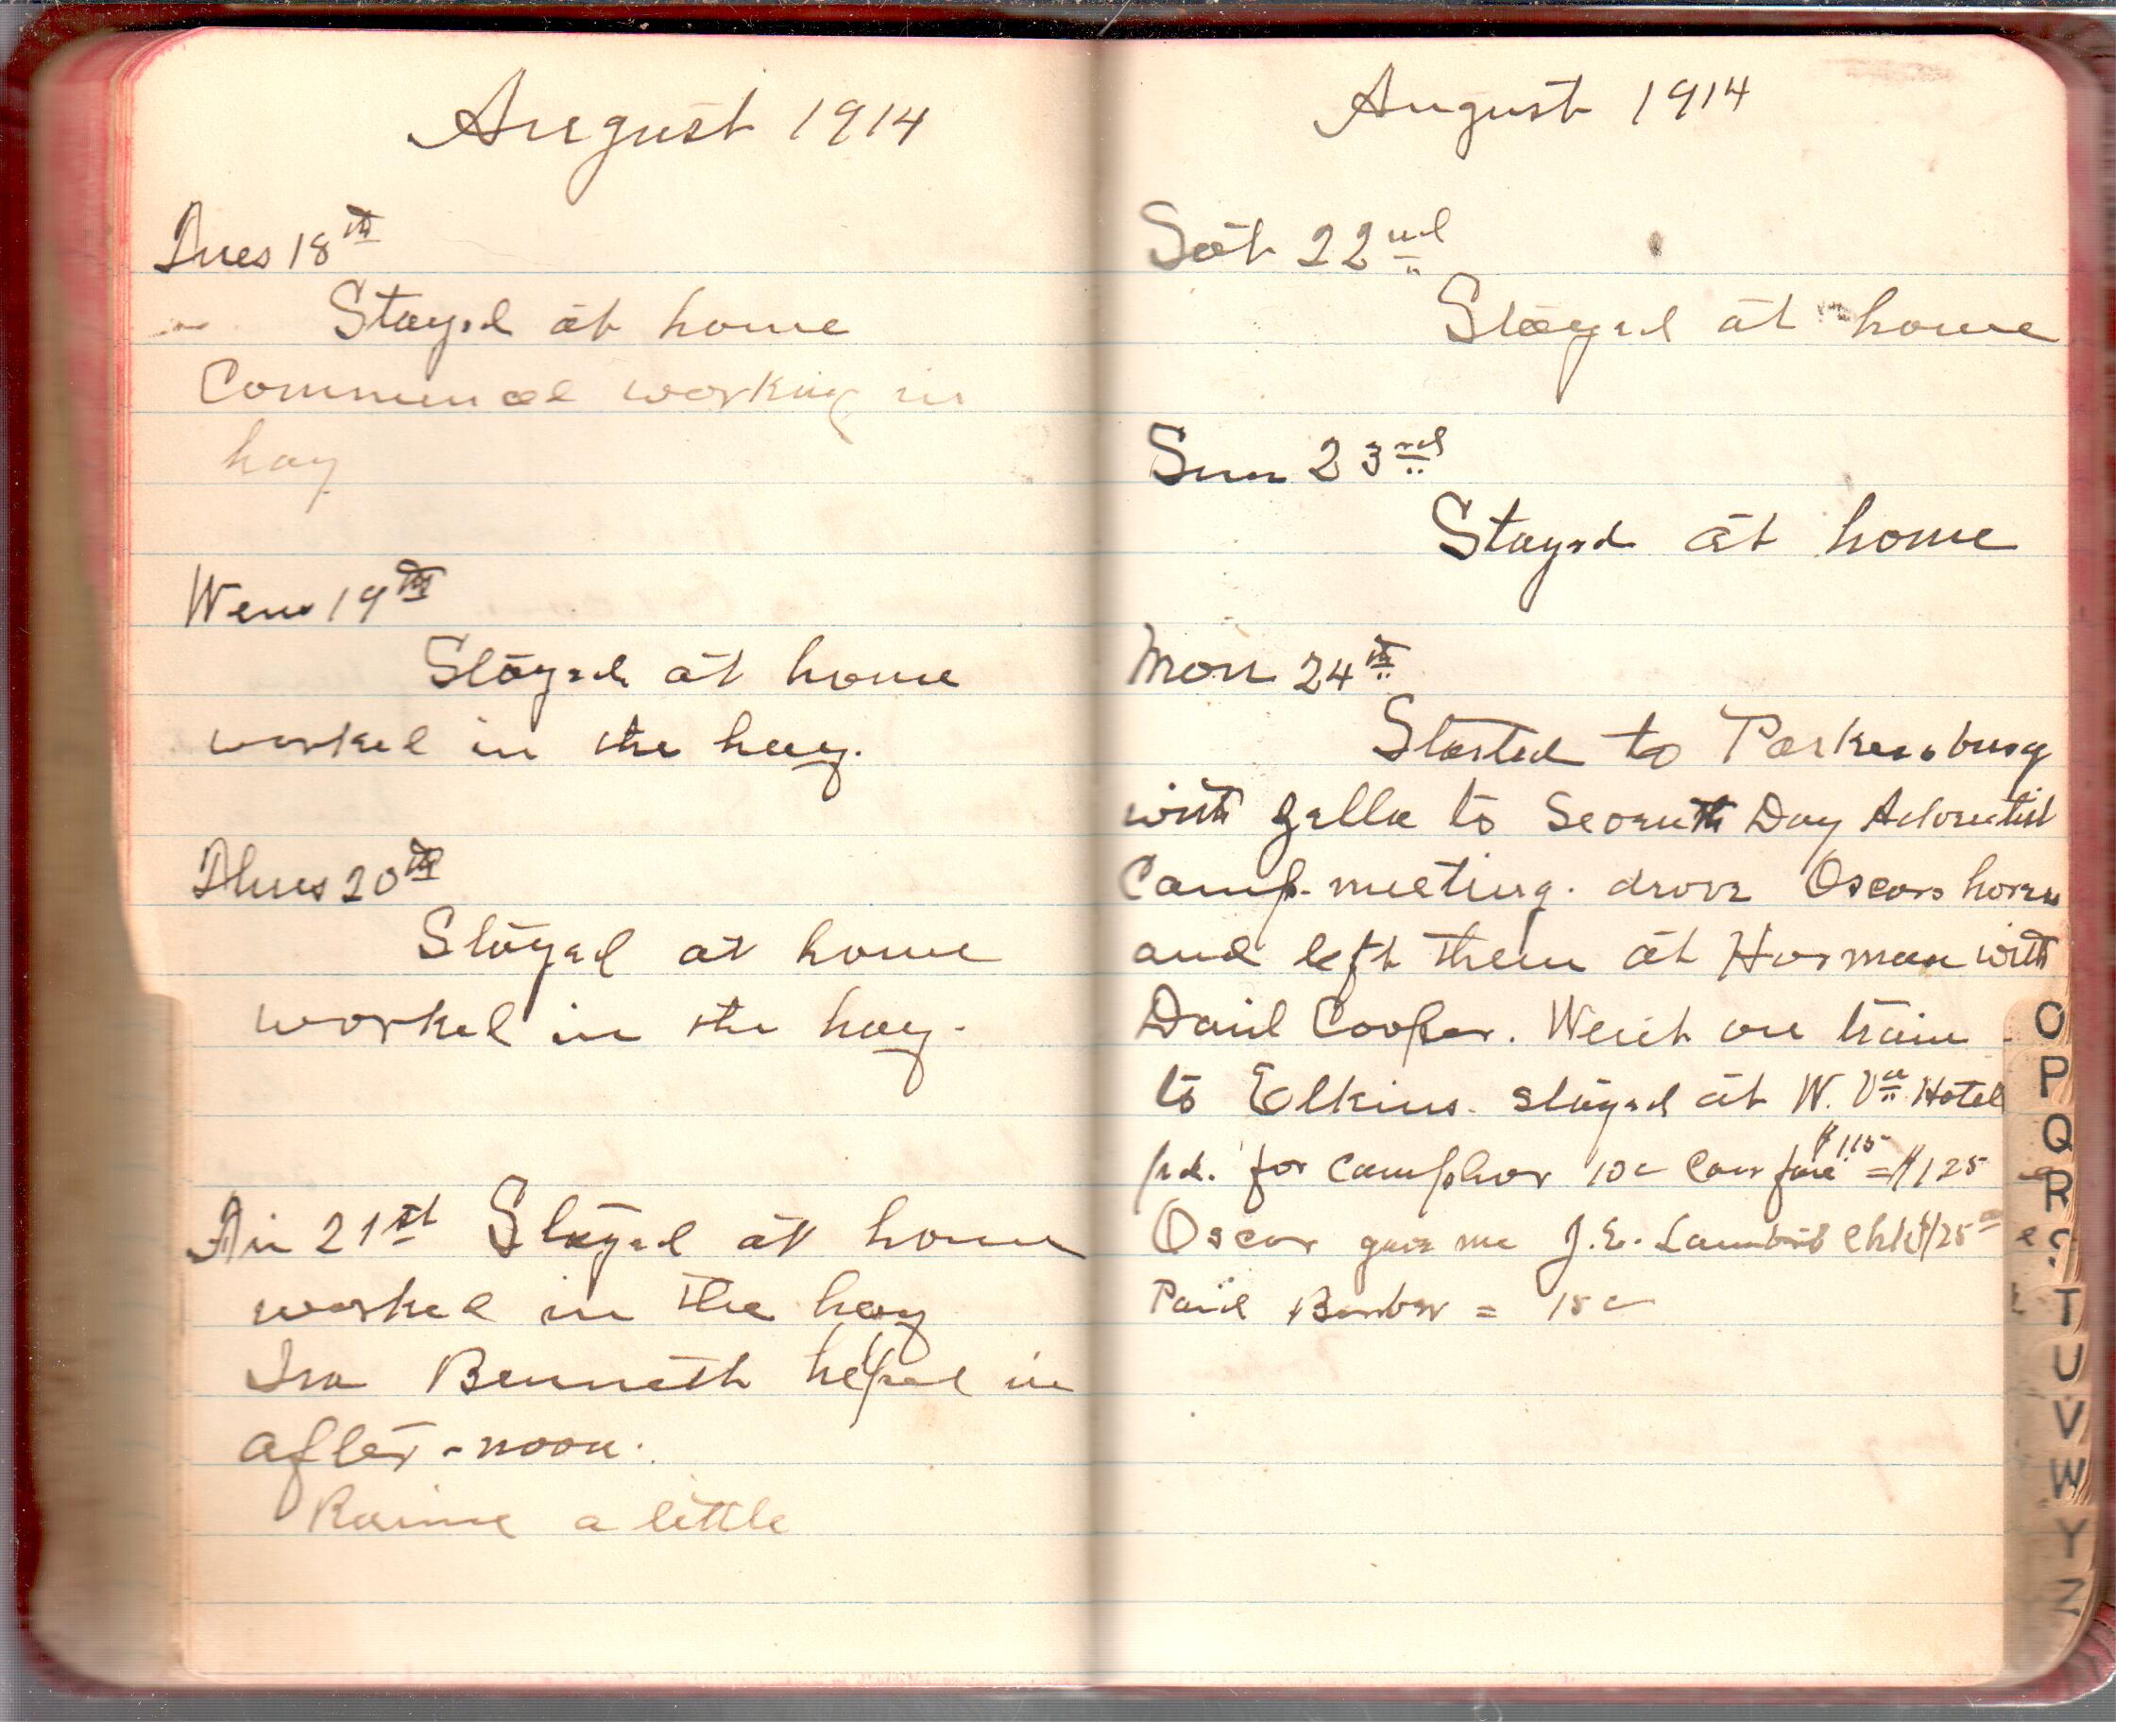 August 1914
Tues 18th
Stayed at home
Commenced working in
hay
Wens 19th
Stayed at home
worked in the hay.
Thurs 20th
Stayed at home
worked in the hay.
Fri 21st Stayed at home
worked in the hay
Ira Bennett helped in
after-noon.
Raine a little
August 1914
Sat 22nd
Stayed at home
Sun 23rd
Stayed at home
Mon 24th
Started to Parkersburg
with Zella to Seventh Day Adventist
Camp-meeting. drove Oscars horses
and left them at Harman with
David Cooper. Went on train
to Elkins. stayed at W. Va Hotel
pd. for camphor 10c Car fare $1.15 = $1.25
Oscar gave me J.E. Lambert chk
Paid Barber = 15c
O
P
Q
R
S
T
U
V
W
Y
Z